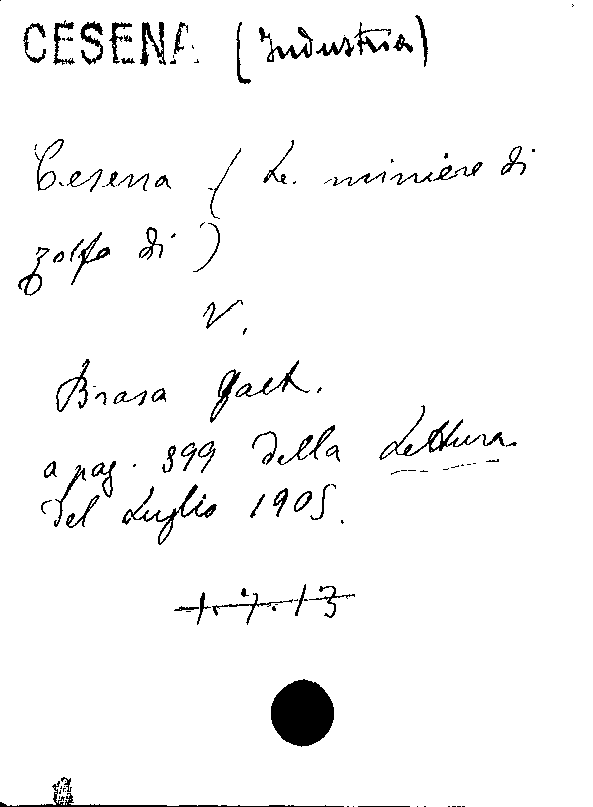 CESENA (Industria)
Cesena (Le miniere di
zolfo di)
V.
Brasa Gaet.
a pag. 599 della Lettura
del Luglio 1905.
1.7.13